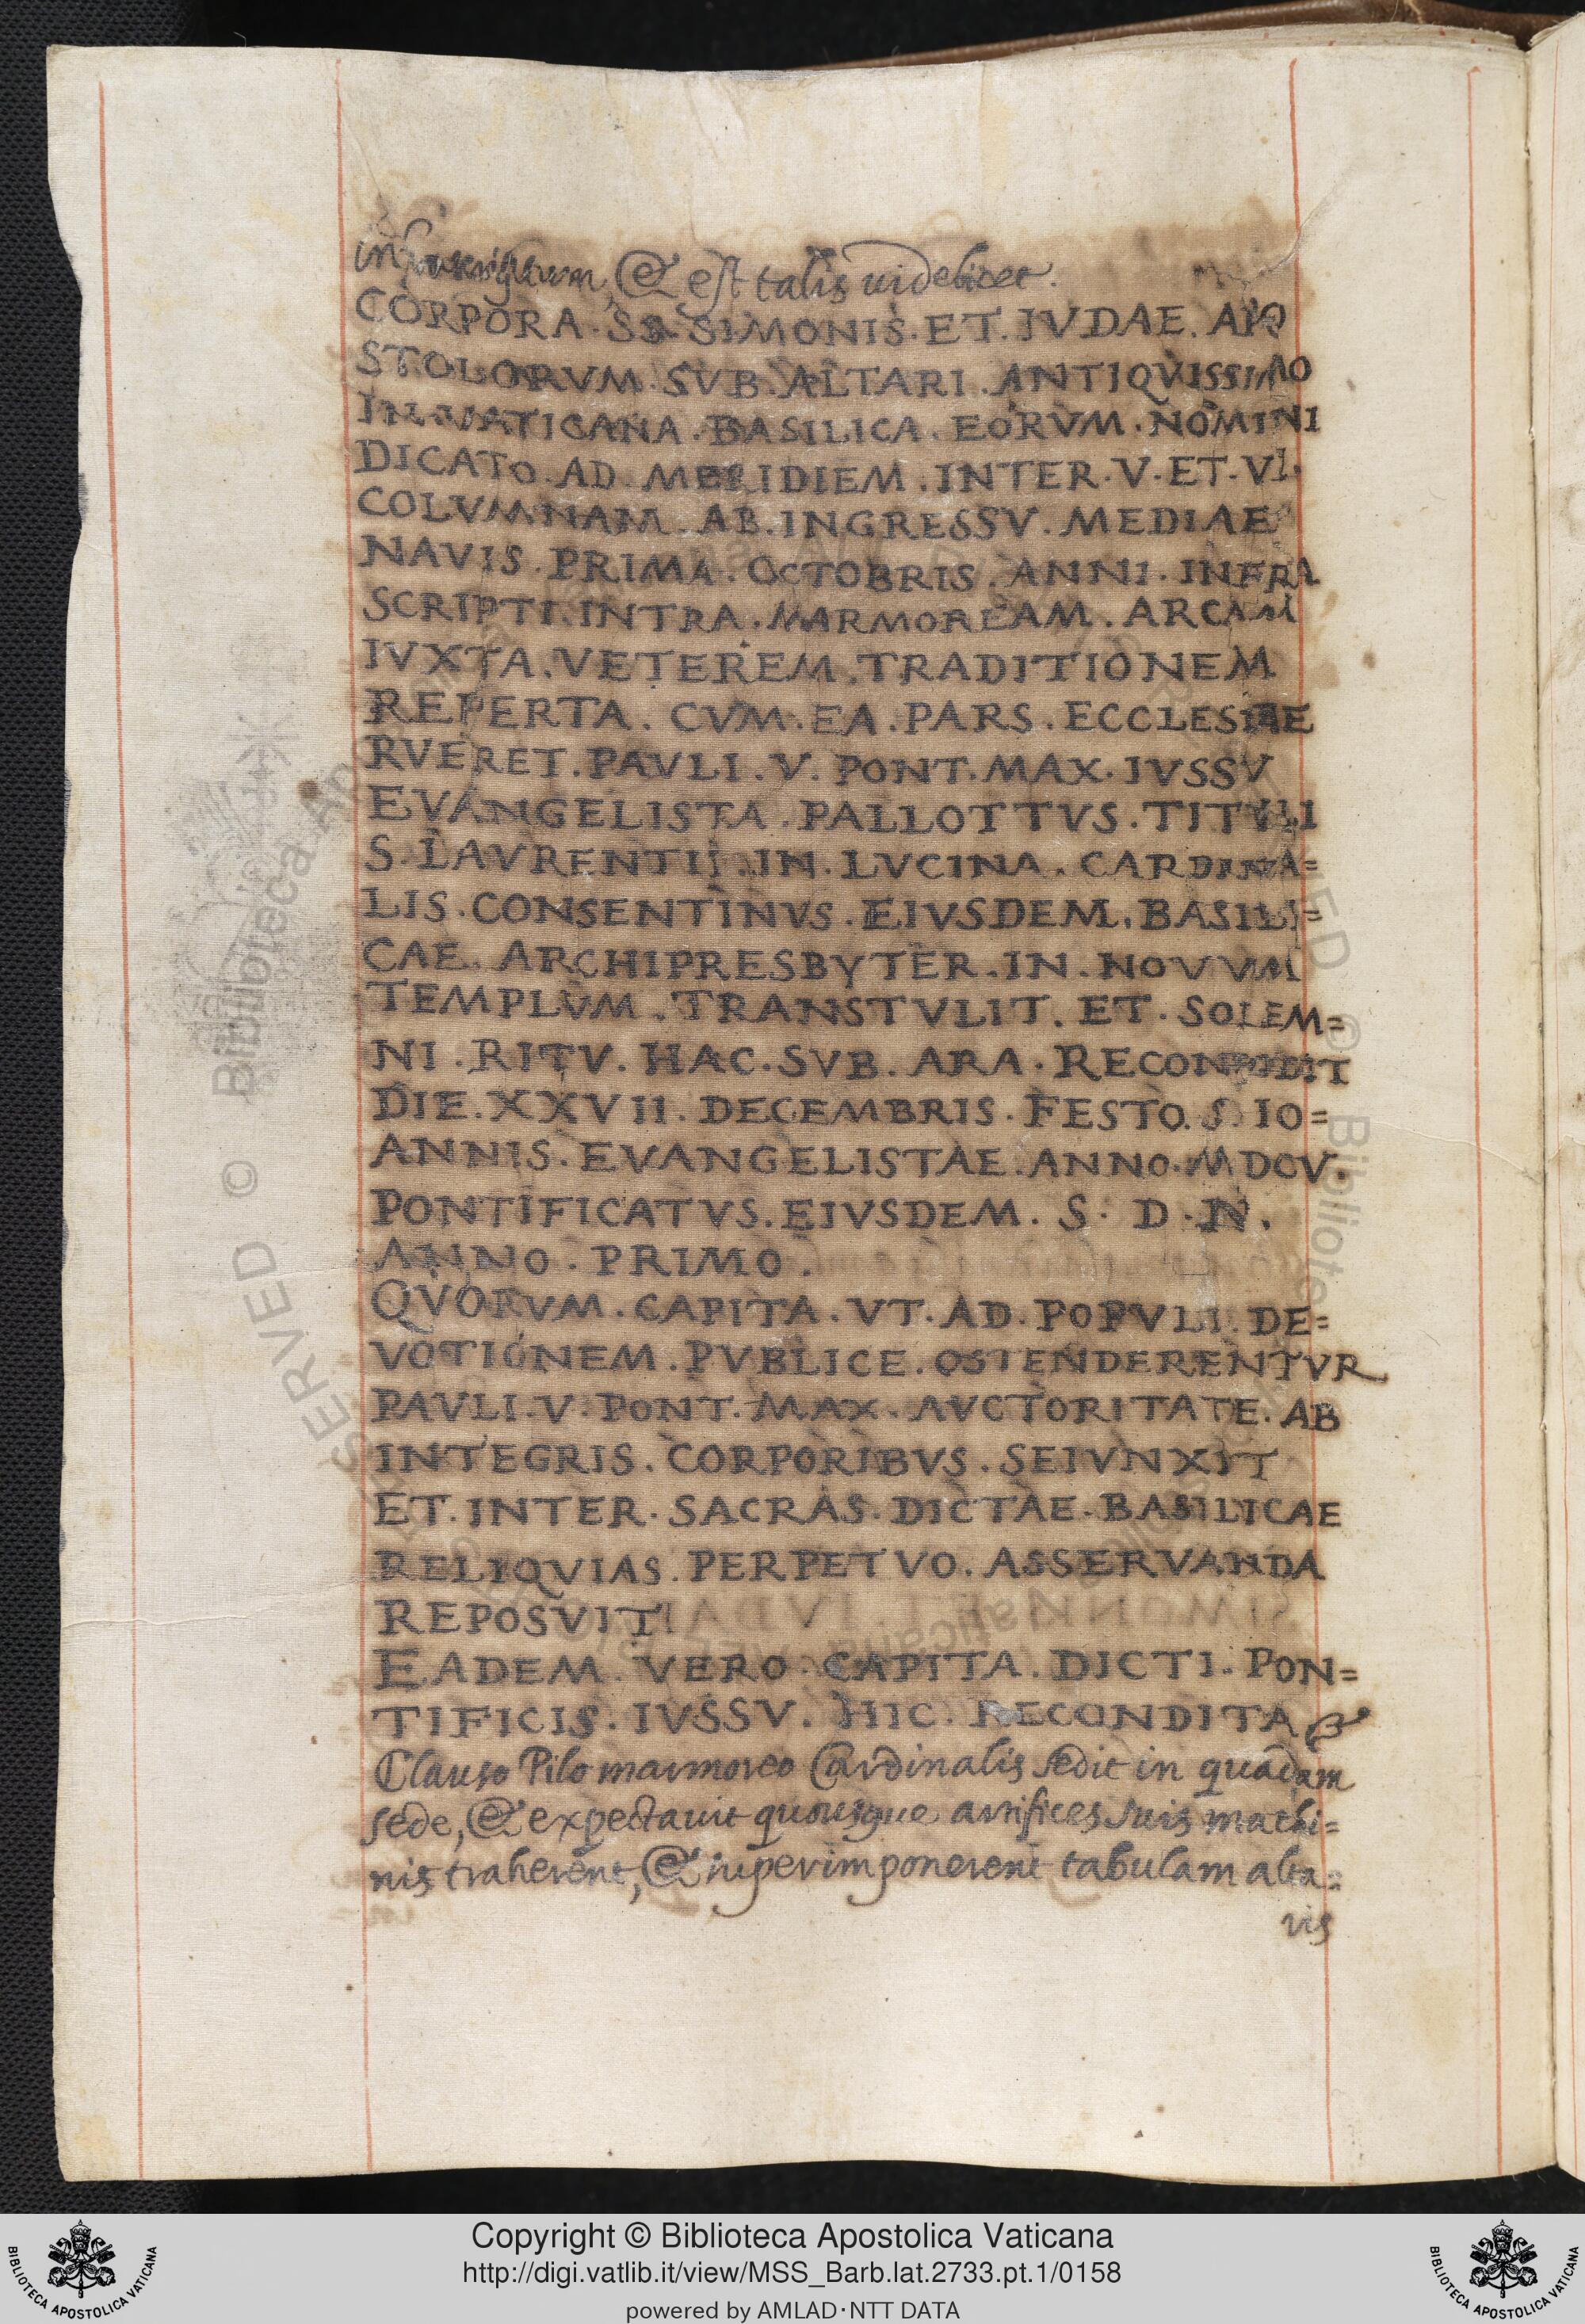 & est talis uidelicet.
CORPORA. SS. SIMONIS. ET. IVDAE. APO
STOLORVM. SVB. ALTARI. ANTIQVISSIMO
IN. VATICANA. BASILICA. EORVM. NOMINI
DICATO. AD. MERIDIEM. INTER. V. ET. VI.
COLVMNAM. AB. INGRESSV. MEDIAE
NAVIS. PRIMA. OCTOBRIS. ANNI. INFRA
SCRIPTI. INTRA. MARMOREAM. ARCAM
IVXTA. VETEREM. TRADITIONEM
REPERTA. CVM. EA. PARS. ECCLESIAE
RVERET. PAVLI. V. PONT. MAX. IVSSV
EVANGELISTA. PALLOTTVS. TITVLI
S. LAVRENTII. IN. LVCINA. CARDINA=
LIS. CONSENTINVS. EIVSDEM. BASILI=
CAE. ARCHIPRESBYTER. IN. NOVVM
TEMPLVM. TRANSTVLIT. ET. SOLEM=
NI. RITV. HAC. SVB. ARA. RECONDIDIT
DIE. XXVII. DECEMBRIS. FESTO. S. IO=
ANNIS. EVANGELISTAE. ANNO. MDCV.
PONTIFICATVS. EIVSDEM. S. D. N.
ANNO. PRIMO.
QVORVM. CAPITA. VT. AD. POPVLI. DE=
VOTIONEM. PVBLICE. OSTENDERENTVR
PAVLI. V. PONT. MAX. AVCTORITATE. AB
INTEGRIS. CORPORIBVS. SEIVNXIT
ET. INTER. SACRAS. DICTAE. BASILICAE
RELIQVIAS. PERPETVO. ASSERVANDA
REPOSVIT
EADEM. VERO. CAPITA. DICTI. PON=
TIFICIS. IVSSV. HIC. RECONDITA
Clauso Pilo marmoreo Cardinalis sedit in quadam
sede, & expectauit quousque artifices suis machi=
nis traherent, & superimponerent tabulam alta=
ris
Copyright © Biblioteca Apostolica Vaticana
http://digi.vatlib.it/view/MSS_Barb.lat.2733.pt.1/0158
powered by AMLAD·NTT DATA
BIBLIOTECA APOSTOLICA VATICANA
BIBLIOTECA APOSTOLICA VATICANA